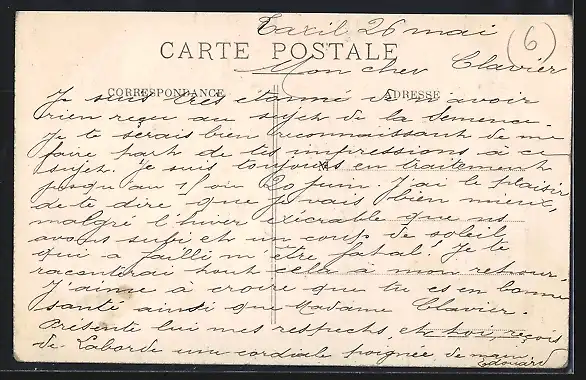 Taxil 26 mai
(6)
CARTE POSTALE
Mon cher Clavier
CORRESPONDANCE
ADRESSE
Je suis très étonné de n'avoir
rien reçu au sujet de la semence.
Je te serais bien reconnaissant de me
faire part de tes impressions à ce
sujet. Je suis toujours en traitement
jusqu'au 15 ou 20 juin. J'ai le plaisir
de te dire que je vais bien mieux,
malgré l'hiver exécrable que ns
avons subi, et un coup de soleil
qui a failli m'être fatal! Je te
raconterai tout cela à mon retour.
J'aime à croire que tu es en bonne
santé ainsi que Madame Clavier.
Présente lui mes respects, et toi, reçois
de Laborde une cordiale poignée de main.
Edouard